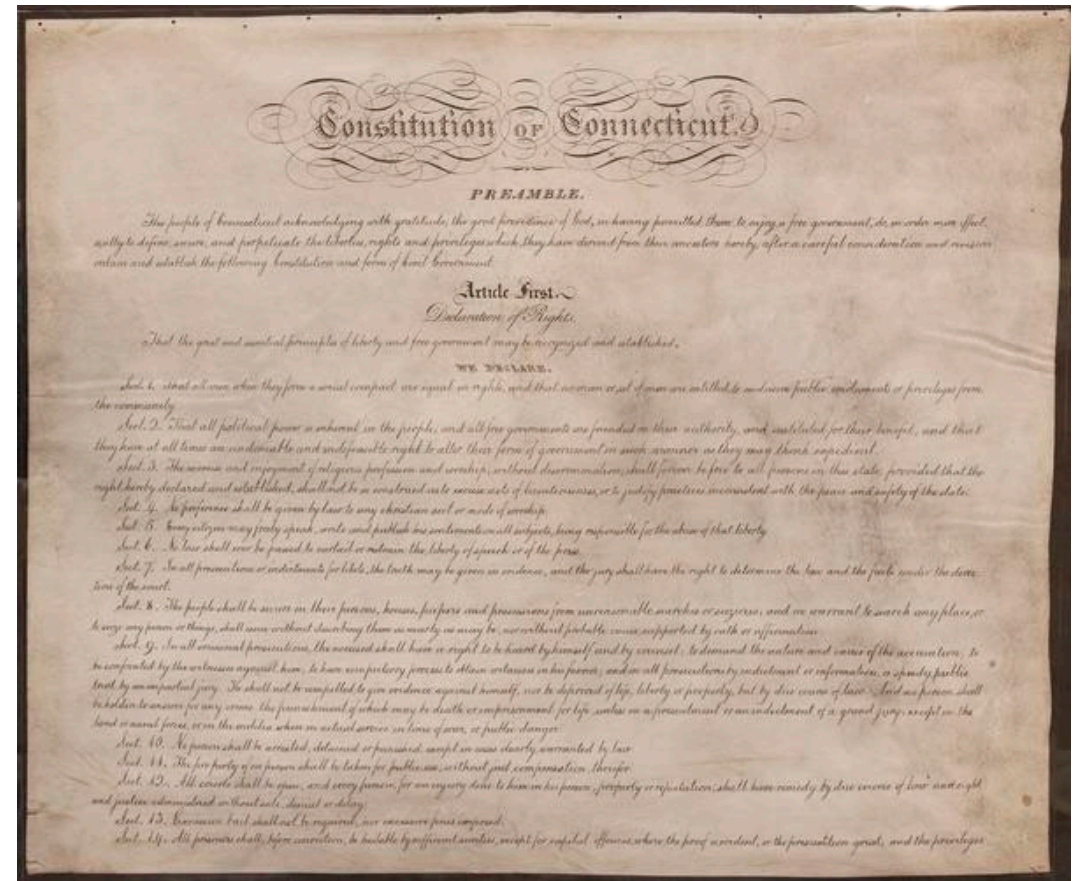 Constitution OF Connecticut.
PREAMBLE.
The people of Connecticut acknowledging with gratitude, the good providence of God, in having permitted them to enjoy a free government, do, in order more effect-
ually to define, secure, and perpetuate the liberties, rights and privileges which they have derived from their ancestors hereby, after a careful consideration and revision
ordain and establish the following Constitution and form of Civil Government
Article First.
Declaration of Rights.
That the great and essential principles of liberty and free government may be recognized and established,
WE DECLARE.
Sect. 1. That all men when they form a social compact, are equal in rights, and that no man or set of men are entitled to exclusive public emoluments or privileges from
the community.
Sect. 2. That all political power is inherent in the people, and all free governments are founded on their authority, and instituted for their benefit, and that
they have at all times an undeniable and indefeasible right to alter their form of government in such manner as they may think expedient.
Sect. 3. The exercise and enjoyment of religious profession and worship, without discrimination, shall forever be free to all persons in this state, provided that the
right hereby declared and established, shall not be so construed as to excuse acts of licentiousness, or to justify practices inconsistent with the peace and safety of the state.
Sect. 4. No preference shall be given by law to any christian sect or mode of worship.
Sect. 5. Every citizen may freely speak, write and publish his sentiments on all subjects, being responsible for the abuse of that liberty.
Sect. 6. No law shall ever be passed to curtail or restrain the liberty of speech or of the press.
Sect. 7. In all prosecutions or indictments for libels, the truth may be given in evidence, and the jury shall have the right to determine the law and the facts under the direc-
tion of the court.
Sect. 8. The people shall be secure in their persons, houses, papers and possessions from unreasonable searches or seizures; and no warrant to search any place, or
to seize any person or things, shall issue without describing them as nearly as may be, nor without probable cause supported by oath or affirmation.
Sect. 9. In all criminal prosecutions, the accused shall have a right to be heard by himself and by counsel; to demand the nature and cause of the accusation; to
be confronted by the witnesses against him; to have compulsory process to obtain witnesses in his favour; and in all prosecutions by indictment or information, a speedy, public
trial by an impartial jury. He shall not be compelled to give evidence against himself, nor be deprived of life, liberty or property, but by due course of law. And no person shall
be holden to answer for any crime the punishment of which may be death or imprisonment for life, unless on a presentment or an indictment of a grand jury; except in the
land or naval forces, or in the militia when in actual service in time of war, or public danger.
Sect. 10. No person shall be arrested, detained or punished, except in cases clearly warranted by law.
Sect. 11. The property of no person shall be taken for public use, without just compensation therefor.
Sect. 12. All courts shall be open, and every person, for an injury done to him in his person, property or reputation, shall have remedy by due course of law and right
and justice administered without sale, denial or delay.
Sect. 13. Excessive bail shall not be required, nor excessive fines imposed.
Sect. 14. All prisoners shall, before conviction, be bailable by sufficient sureties, except for capital offences, where the proof is evident, or the presumption great; and the privileges